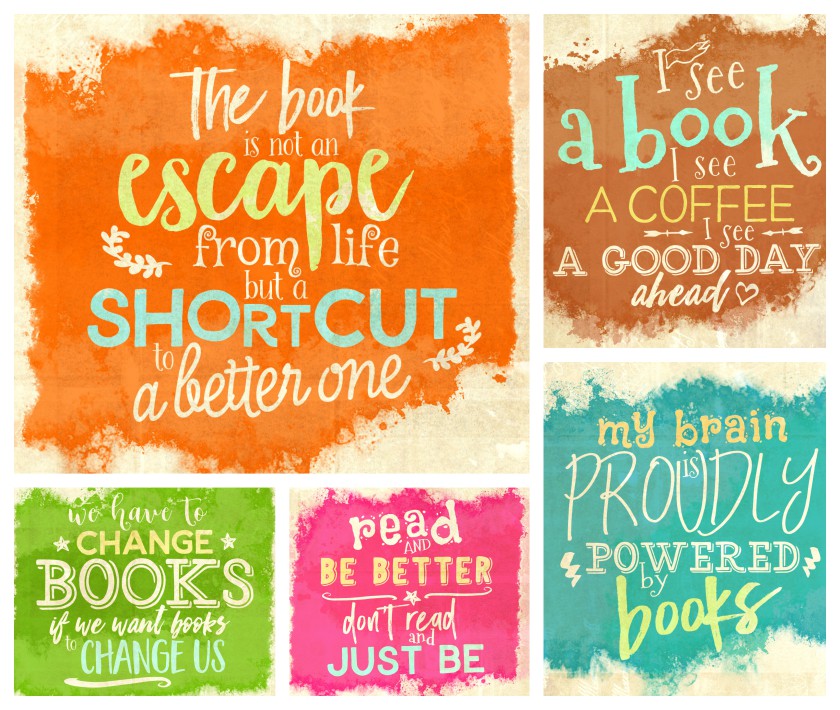 The book
is not an
escape
from life
but a
SHORTCUT
to
a better one
I see
a book
I see
A COFFEE
I see
A GOOD DAY
ahead
my brain
is
PROUDLY
POWERED
by
books
we have to
CHANGE
BOOKS
if we want books
to CHANGE US
read
AND
BE BETTER
don't read
and
JUST BE